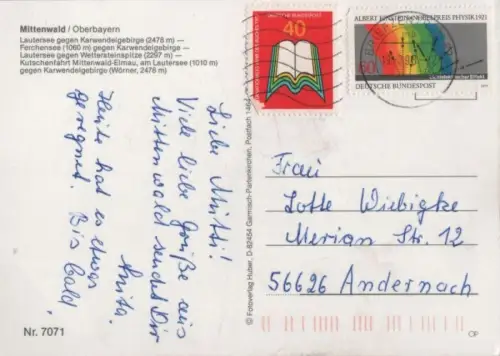 Mittenwald / Oberbayern
Lautersee gegen Karwendelgebirge (2478 m) —
Ferchensee (1060 m) gegen Karwendelgebirge —
Lautersee gegen Wettersteinspitze (2297 m) —
Kutschenfahrt Mittenwald-Elmau, am Lautersee (1010 m)
gegen Karwendelgebirge (Wörner, 2478 m)
Liebe Mutti!
Viele liebe Grüße aus
Mittenwald sendet Dir
Anita.
Heute hat es etwas
geregnet. Bis bald,
Nr. 7071
© Fotoverlag Huber, D-82454 Garmisch-Partenkirchen, Postfach
40
DEUTSCHE BUNDESPOST
ALBERT EINSTEIN NOBELPREIS PHYSIK 1921
60
DEUTSCHE BUNDESPOST
Frau
Lotte Wiebigke
Merian Str. 12
56626 Andernach
CP